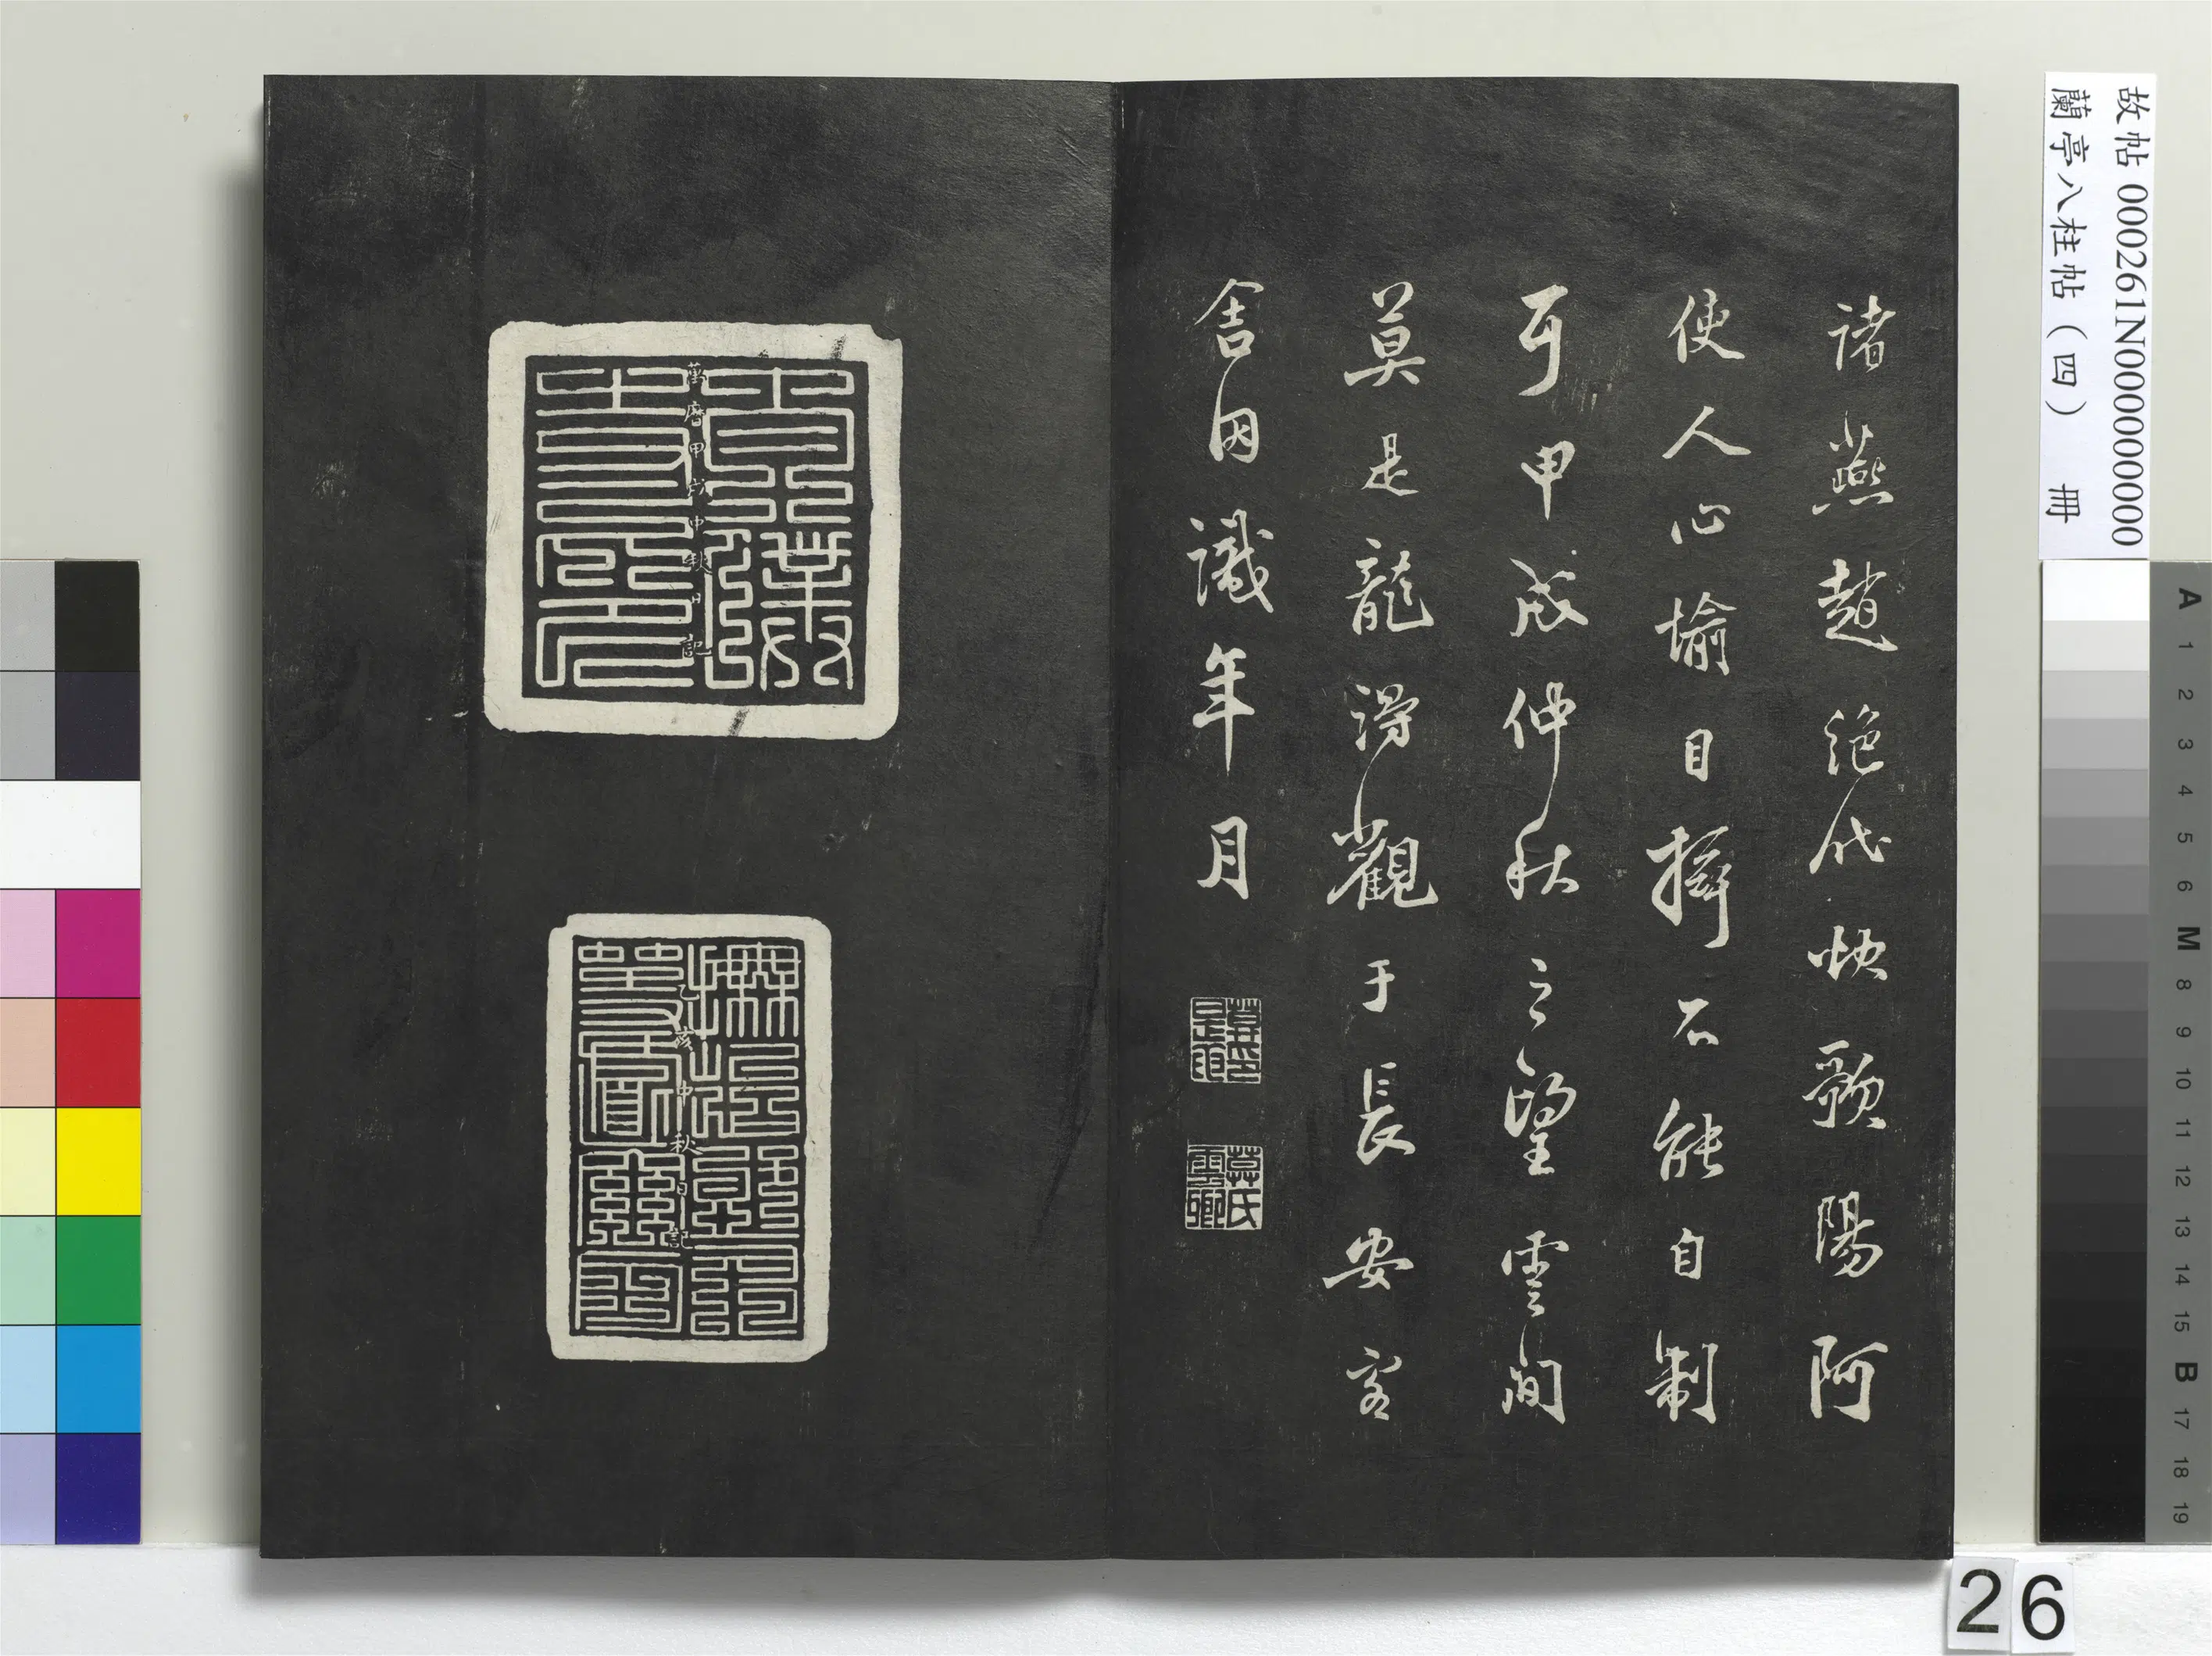 諸燕趙絕代快歌陽阿
使人心愉目搖不能自制
可甲戌仲秋之望雲間
莫是龍得觀于長安客
舍因識年月
莫氏
雲卿
萬曆甲戌中秋日記
乙亥中秋日記
故帖 000261N000000000
蘭亭八柱帖（四） 冊
26
A 1 2 3 4 5 6 M 8 9 10 11 12 13 14 15 B 17 18 19